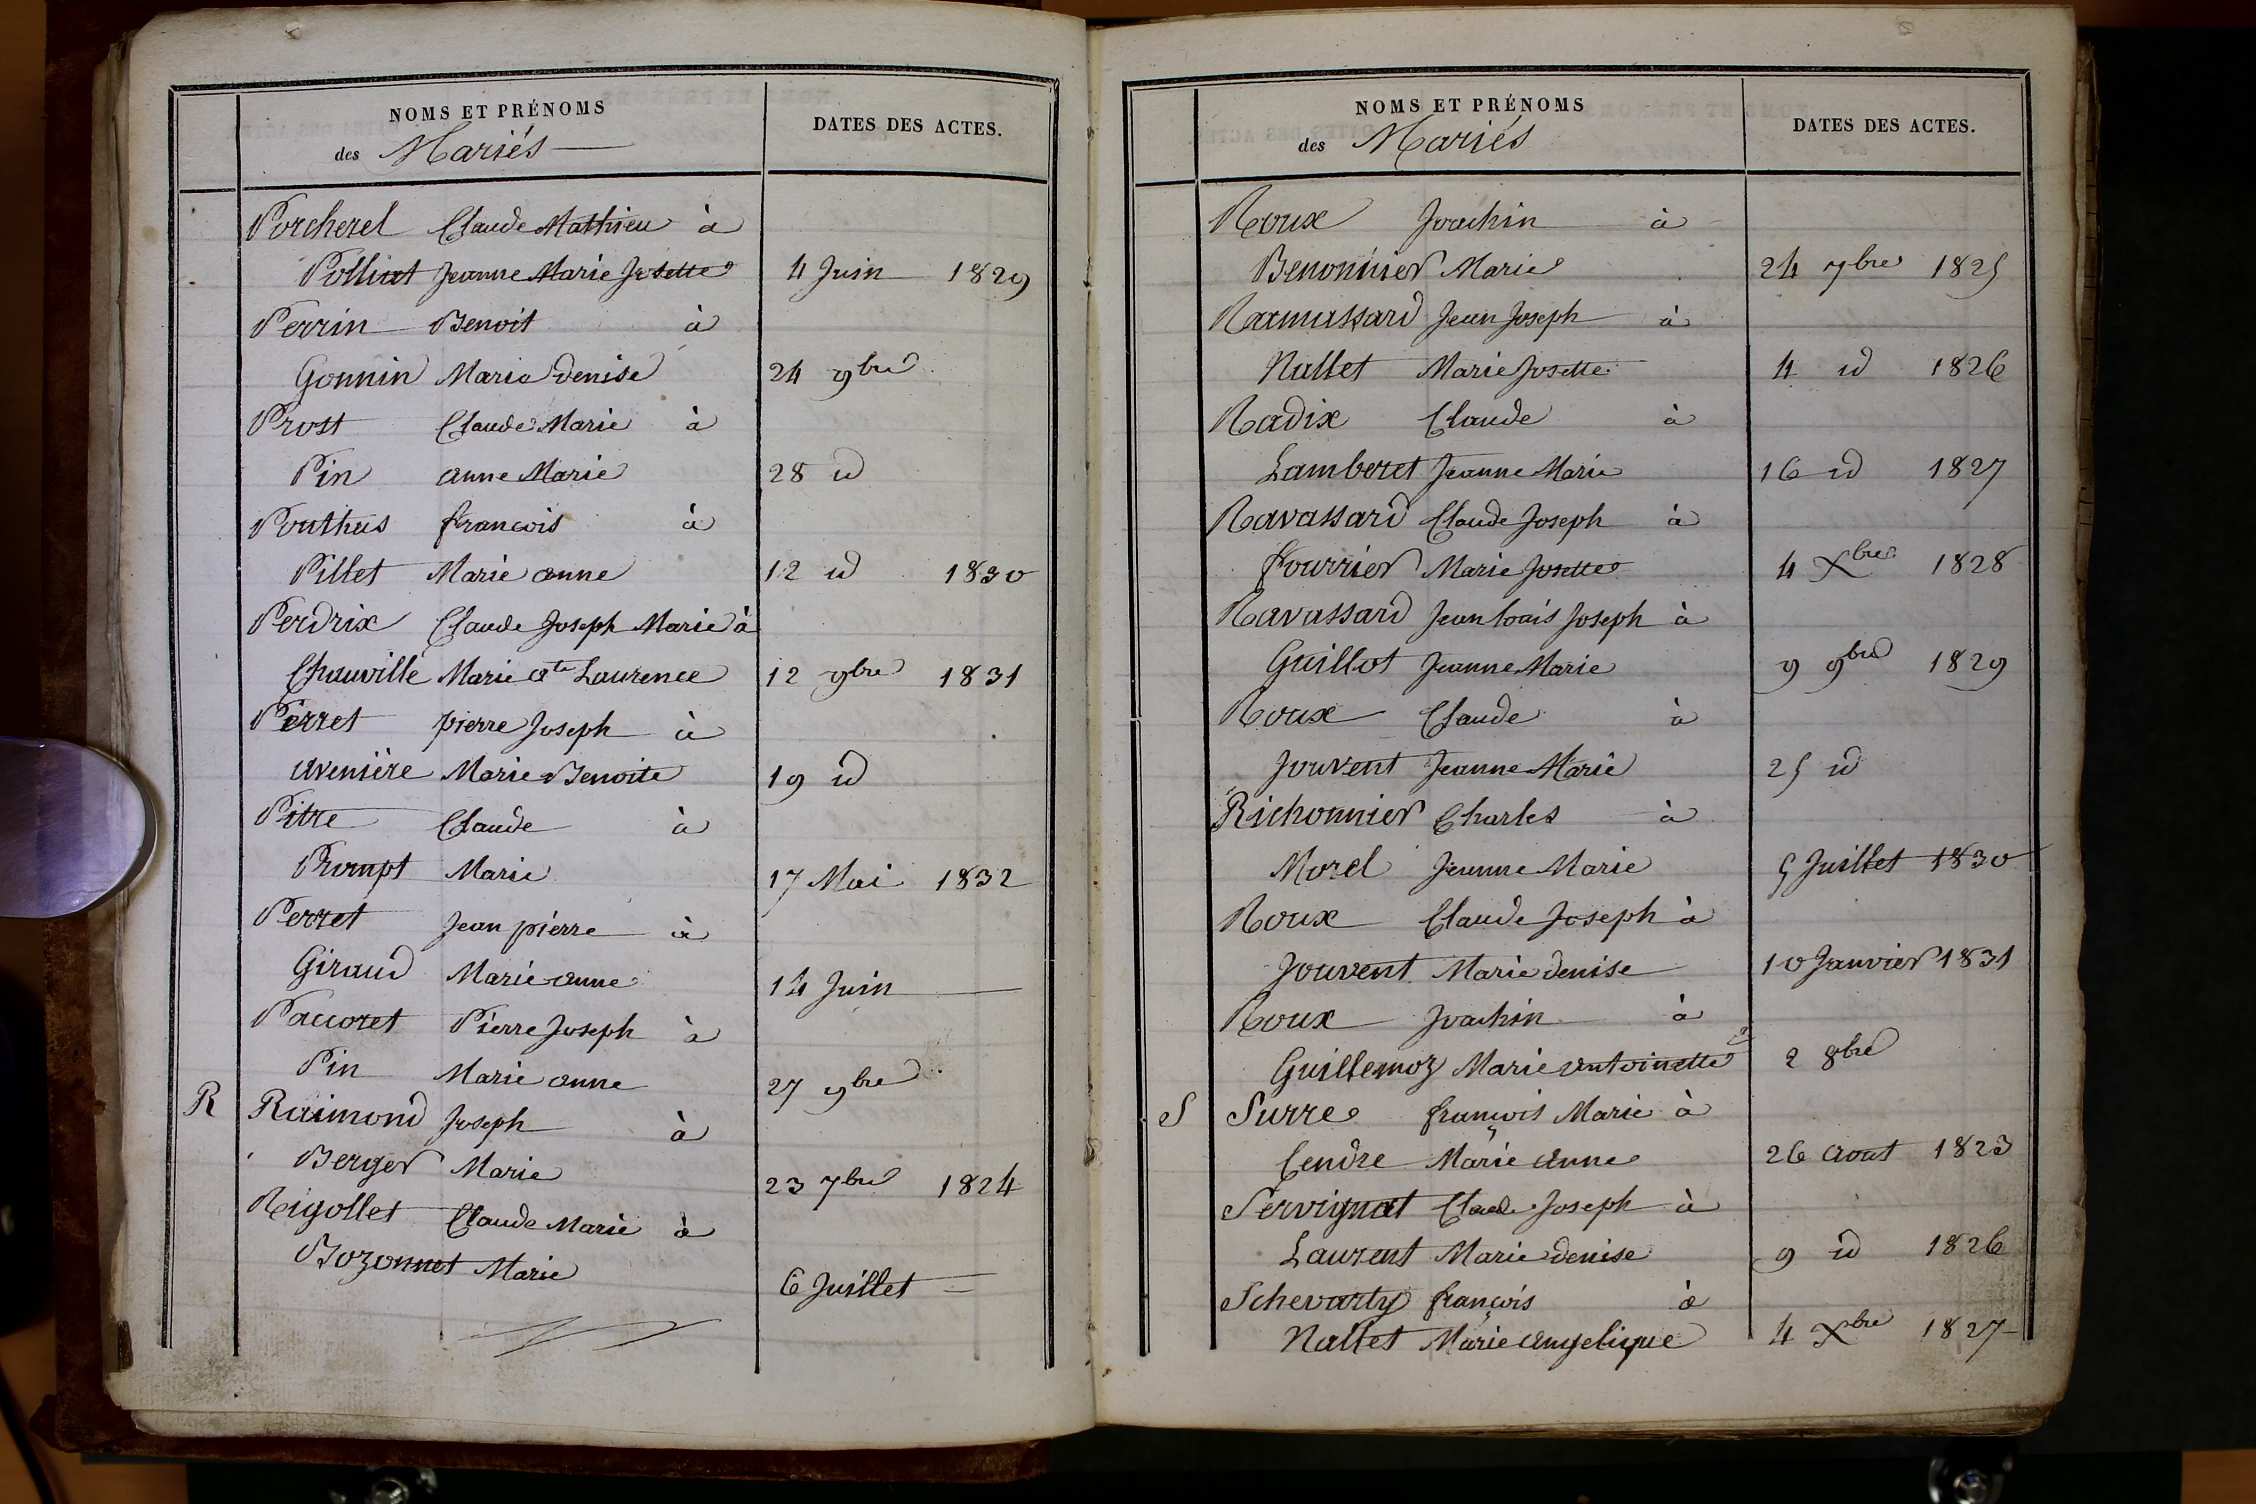 NOMS ET PRÉNOMS
des Mariés
DATES DES ACTES.
Porcherel Claude Mathieu à
Polliat Jeanne Marie Josette 4 Juin 1829
Perrin Benoit à
Gonnin Marie denise 24 9bre
Prost Claude Marie à
Pin anne Marie 28 id
Pouthus françois à
Pillet Marie anne 12 id 1830
Perdrix Claude Joseph Marie à
Chauville Marie ate Laurence 12 9bre 1831
Perret pierre Joseph à
avenière Marie Benoite 19 id
Pitre Claude à
Prompt Marie 17 Mai 1832
Perret Jean pierre à
Giraud Marie anne 14 Juin
Paccoret Pierre Joseph à
Pin Marie anne 27 9bre
R Raimond Joseph à
Berger Marie 23 7bre 1824
Rigollet Claude Marie à
Bozonnet Marie 6 Juillet
NOMS ET PRÉNOMS
des Mariés
DATES DES ACTES.
Roux Joachin à
Benonnier Marie 24 7bre 1825
Ramassard Jean Joseph à
Nallet Marie Josette 4 id 1826
Radix Claude à
Lamberet Jeanne Marie 16 id 1827
Ravassard Claude Joseph à
fourrier Marie Josette 4 Xbre 1828
Ravassard Jean louis Joseph à
Guillot Jeanne Marie 9 9bre 1829
Roux Claude à
Jouvent Jeanne Marie 25 id
Richonnier Charles à
Morel Jeanne Marie 5 Juillet 1830
Roux Claude Joseph à
Jouvent Marie denise 10 Janvier 1831
Roux Joachin à
Guillemoz Marie antoinette 2 8bre
S Surre françois Marie à
Cendre Marie anne 26 aout 1823
Servignat Claude Joseph à
Laurent Marie denise 9 id 1826
Schevarty françois à
Nallet Marie angelique 4 Xbre 1827